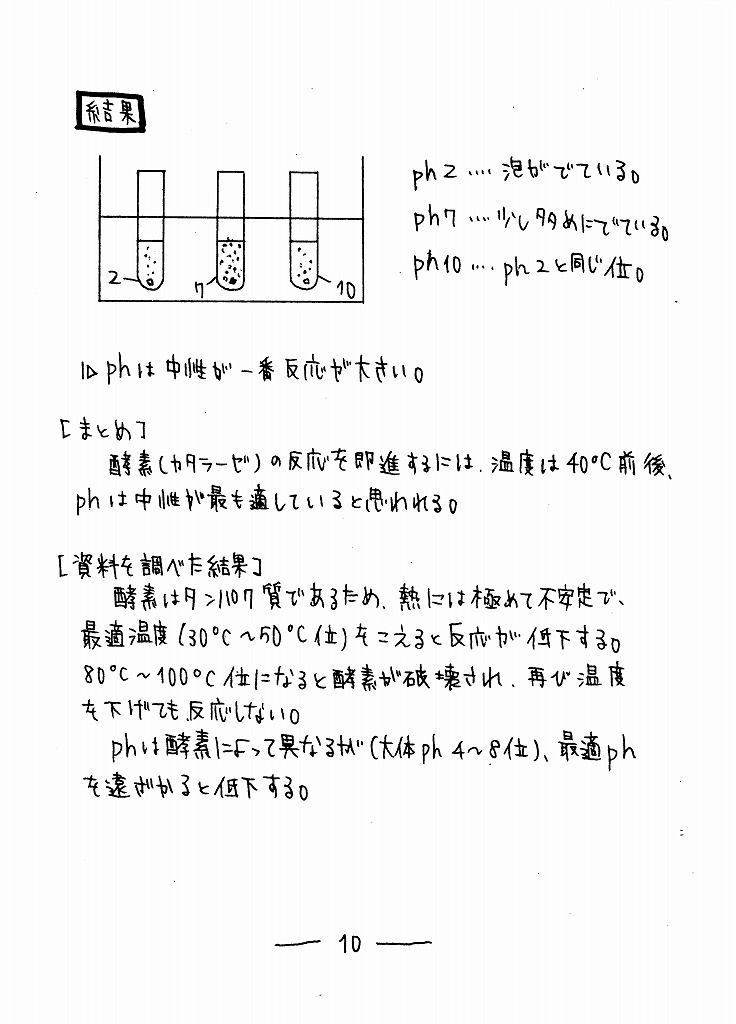 結果
ph2 .... 泡がでている。
ph7 .... 少し多めにでている。
ph10 .... ph2と同じ位。
2
7
10
▷ phは中性が一番反応が大きい。
[まとめ]
酵素(カタラーゼ)の反応を即進するには、温度は40℃前後、
phは中性が最も適していると思われる。
[資料を調べた結果]
酵素はタンパク質であるため、熱には極めて不安定で、
最適温度(30℃~50℃位)をこえると反応が低下する。
80℃~100℃位になると酵素が破壊され、再び温度
を下げても反応しない。
phは酵素によって異なるが(大体ph4~8位)、最適ph
を遠ざかると低下する。
— 10 —